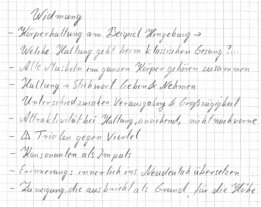 Widmung
- Körperhaltung am Beispiel Hingebung →
Welche Haltung geht beim klassischen Gesang?...
- Alle Muskeln im ganzen Körper gehören zusammen
- Haltung → Stichwort Geben & Nehmen
Unterschied zwischen Verausgabung & Großzügigkeit
- Attraktivität bei Haltung, anziehend, nicht nach vorne
- Triolen gegen Viertel
- Konsonanten als Impuls
- Erinnerung: innerlich ins Neudeutsch übersetzen
- Zuneigung, die ausbricht als Grund für die Höhe